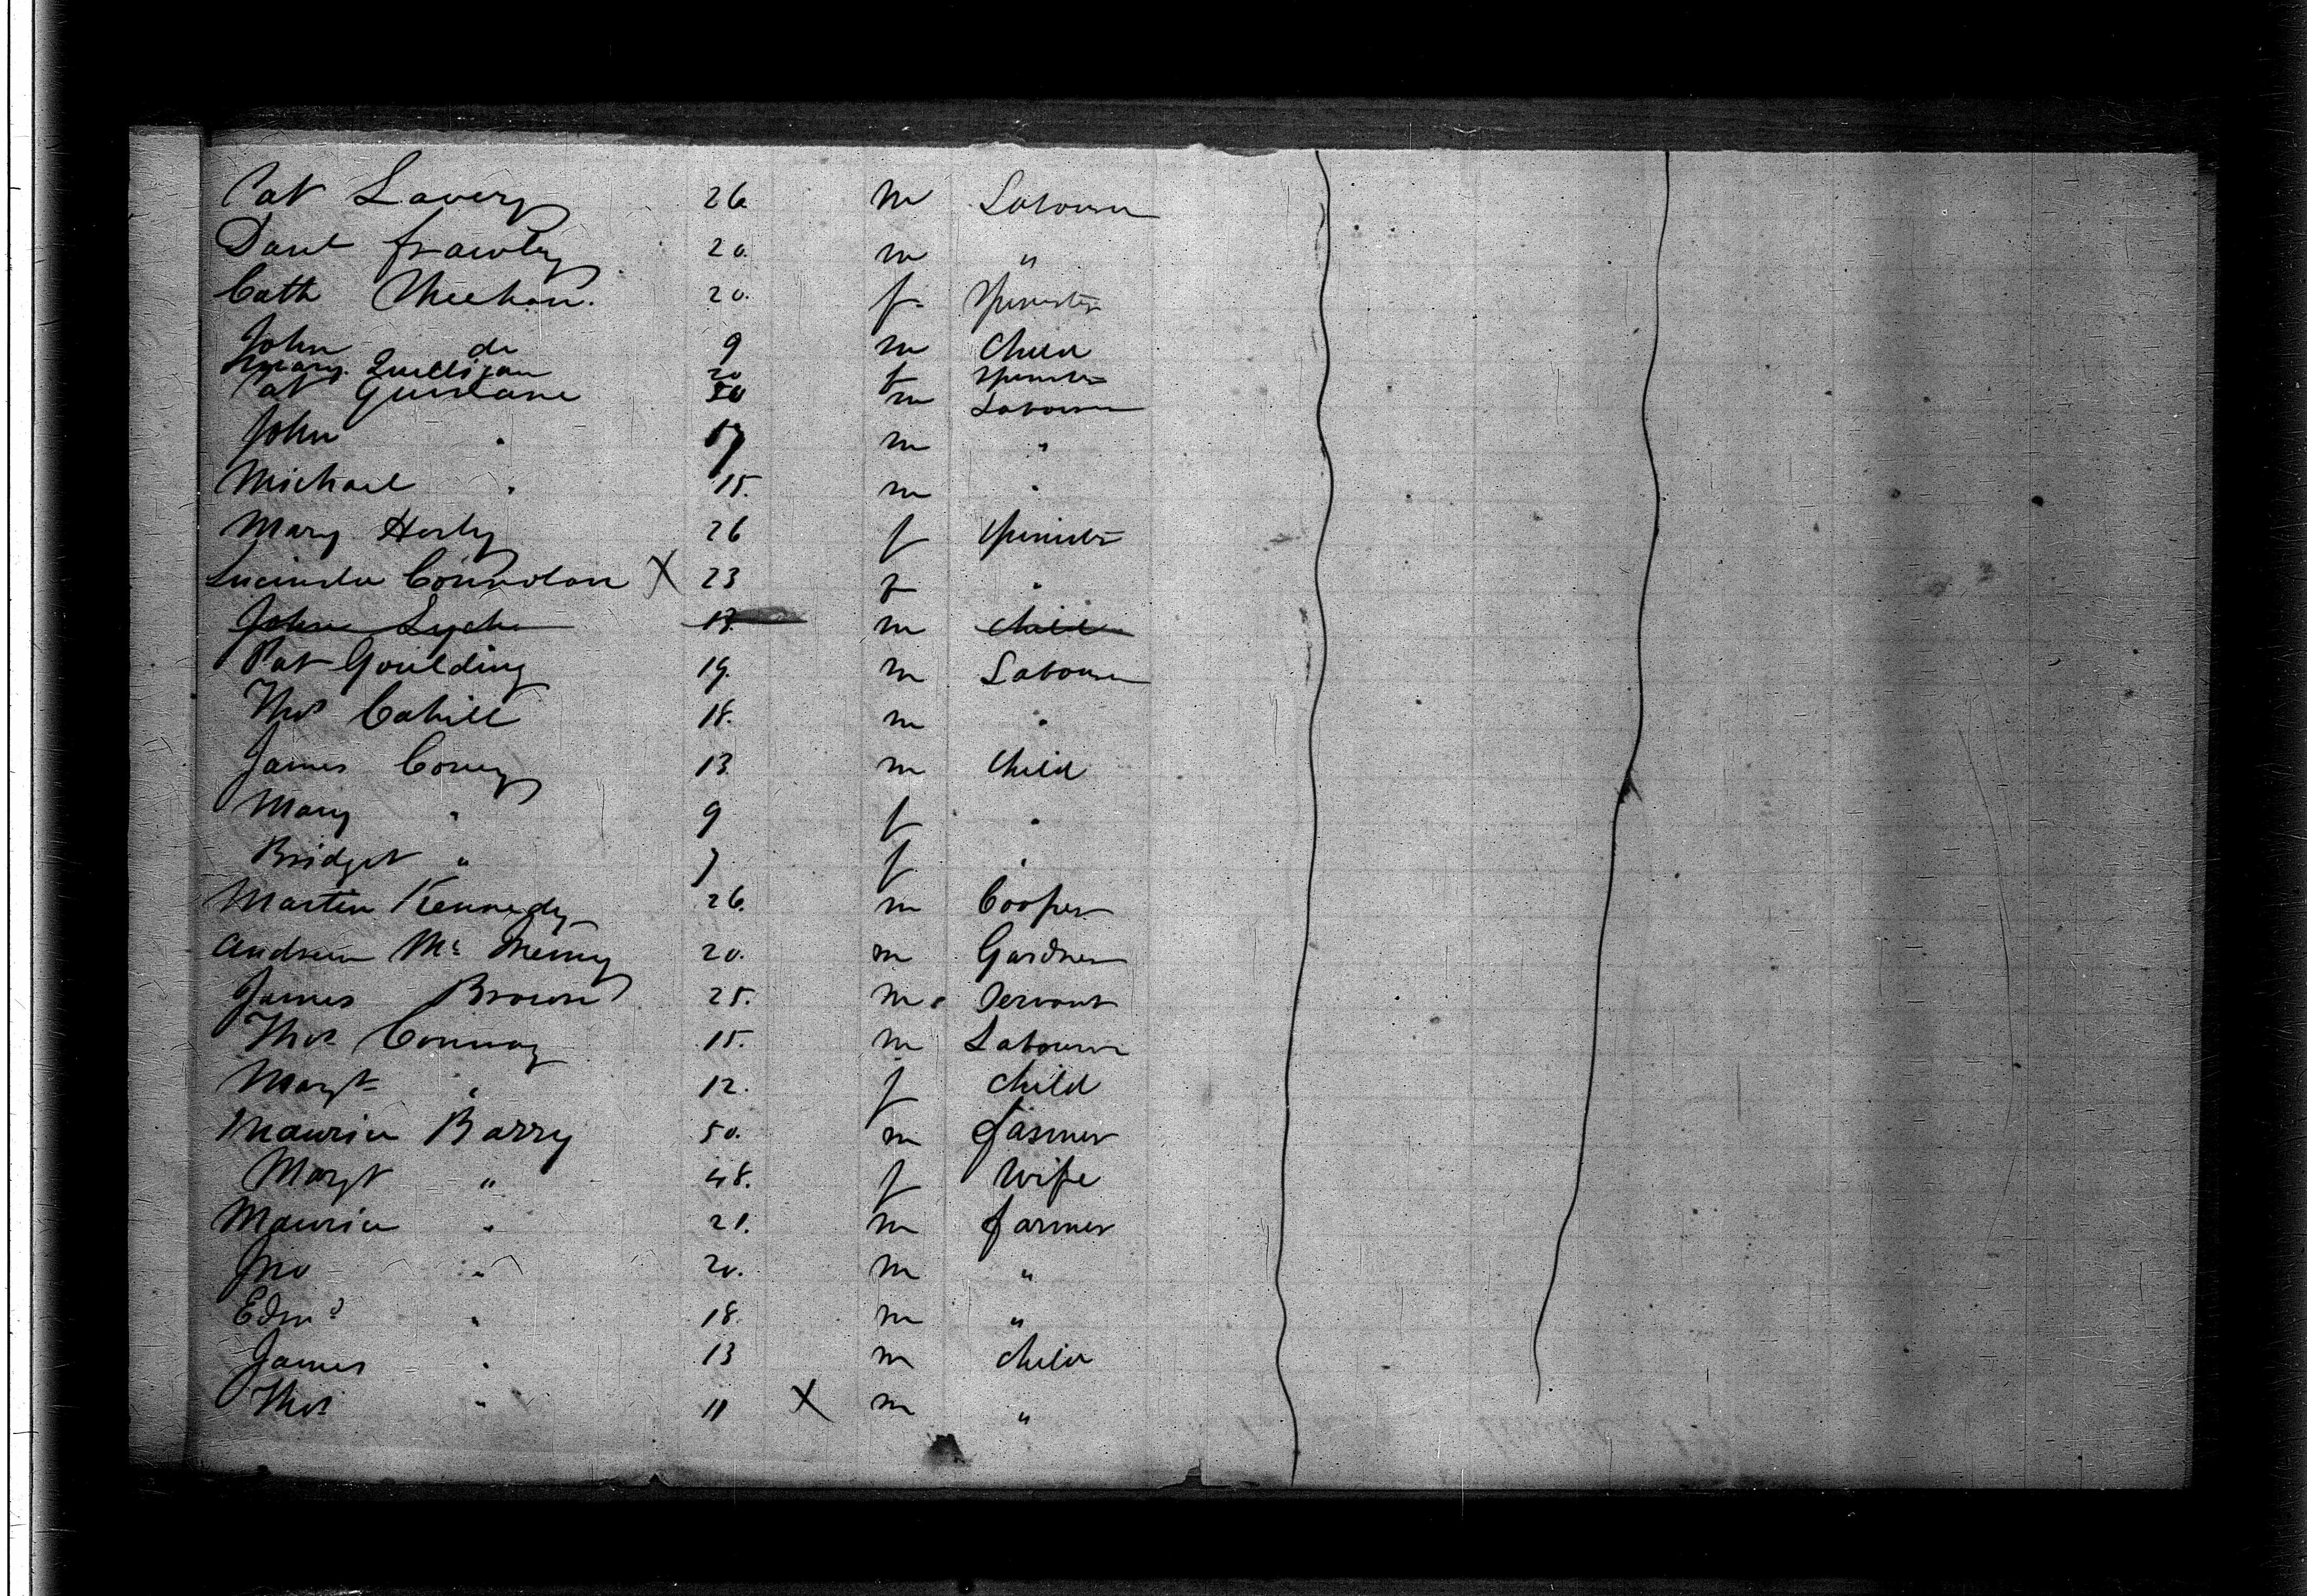 Pat Lavery 26 m Labourer
Danl Frawley 20. m "
Cath Meehan. 20. f Spinster
John do 9 m Child
Mary Quilligan 20 f Spinster
Pat Quinlane 50 m Labourer
John " 17 m "
Michael " 15. m "
Mary Herly 26 f Spinster
Lucinda Connolan X 23 f "
John Lynch 13 m Child
Pat Goulding 19. m Labourer
Thos Cahill 18. m "
James Coney 13 m Child
Mary " 9 f "
Bridget " 7 f "
Martin Kennedy 26. m Cooper
Andrew Mc 20. m Gardner
James Brown 25. m Servant
Thos Conway 15. m Labourer
Margt " 12. f Child
Maurice Barry 50. m Farmer
Margt " 48. f Wife
Maurice " 21. m Farmer
Jno " 20. m "
Edmd " 18. m "
James " 13 m Child
Thos " 11 X m "